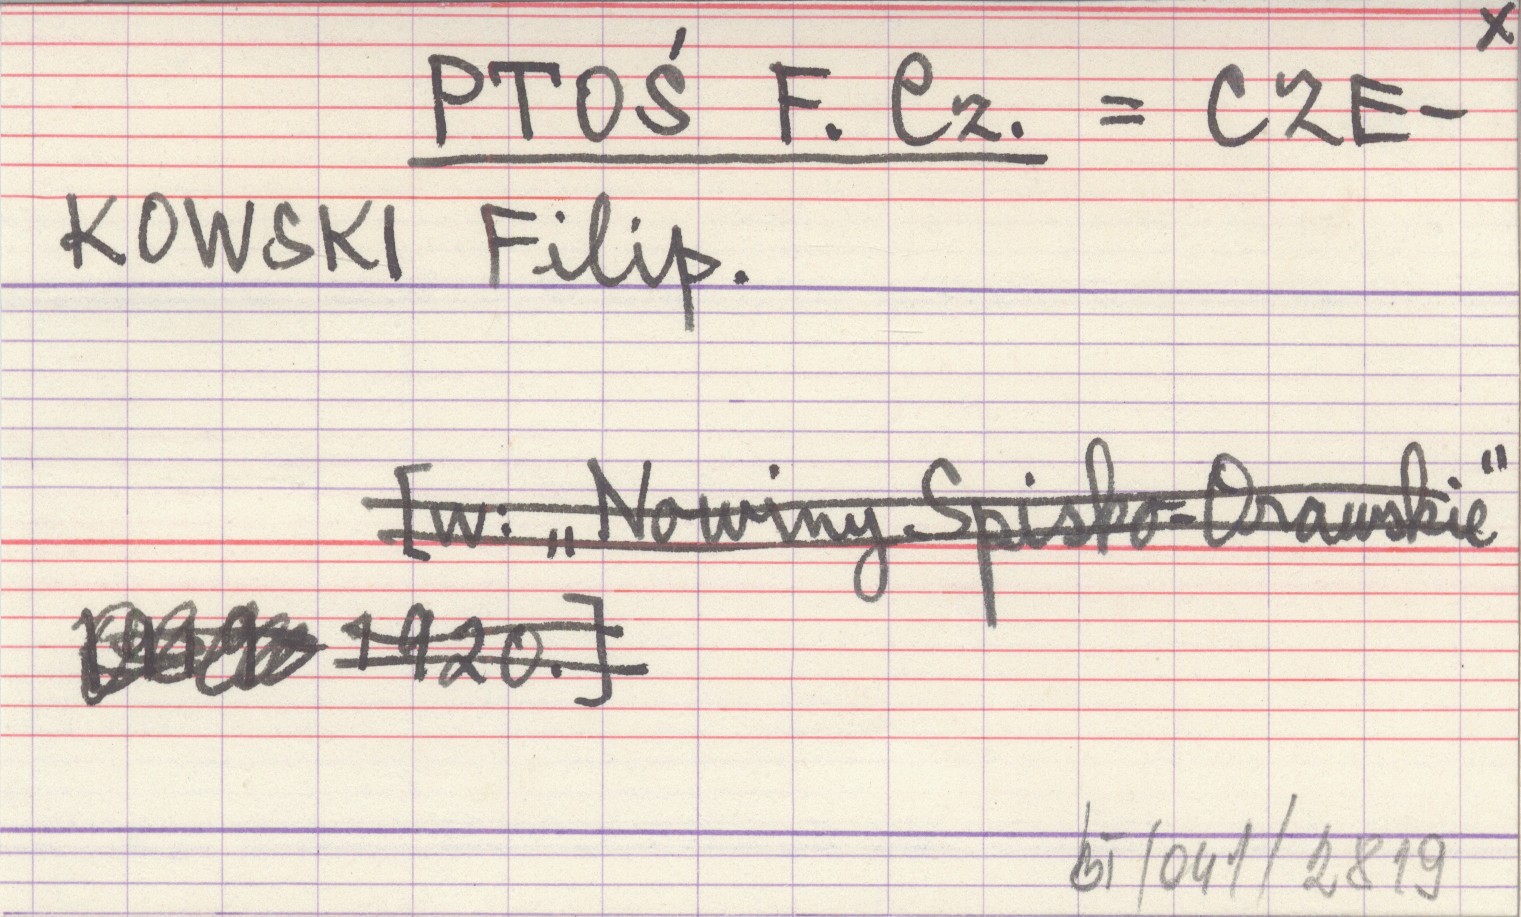 x
PTOŚ F. Cz. = CZE-
KOWSKI Filip.
[w: „Nowiny Spisko-Orawskie"
1920.]
bī/041/2819